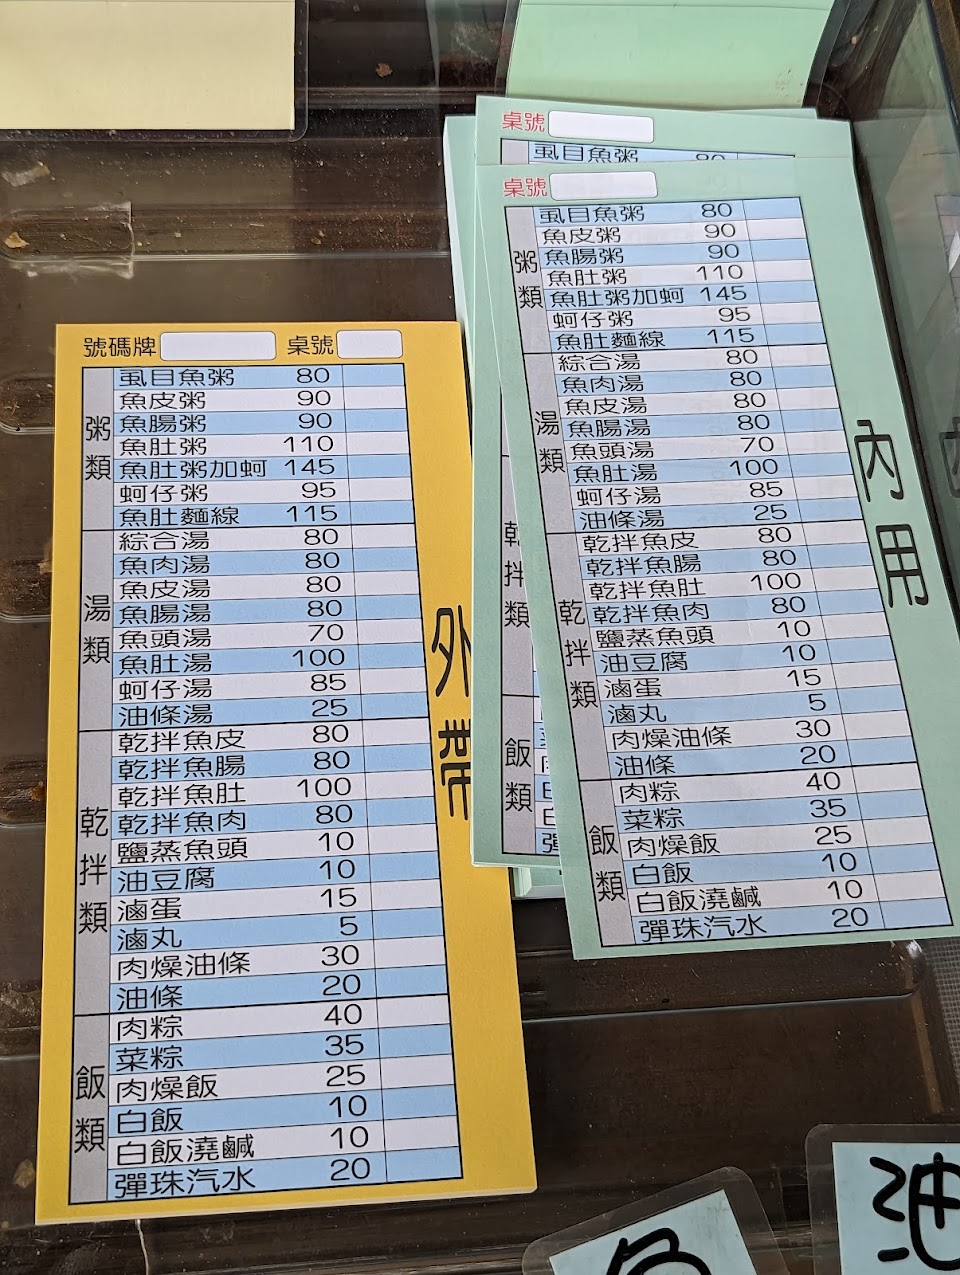 號碼牌 桌號
粥類
虱目魚粥 80
魚皮粥 90
魚腸粥 90
魚肚粥 110
魚肚粥加蚵 145
蚵仔粥 95
魚肚麵線 115
湯類
綜合湯 80
魚肉湯 80
魚皮湯 80
魚腸湯 80
魚頭湯 70
魚肚湯 100
蚵仔湯 85
油條湯 25
乾拌類
乾拌魚皮 80
乾拌魚腸 80
乾拌魚肚 100
乾拌魚肉 80
鹽蒸魚頭 10
油豆腐 10
滷蛋 15
滷丸 5
肉燥油條 30
油條 20
飯類
肉粽 40
菜粽 35
肉燥飯 25
白飯 10
白飯澆鹹 10
彈珠汽水 20
外帶
桌號
虱目魚粥 80
乾拌類
飯類
桌號
粥類
虱目魚粥 80
魚皮粥 90
魚腸粥 90
魚肚粥 110
魚肚粥加蚵 145
蚵仔粥 95
魚肚麵線 115
湯類
綜合湯 80
魚肉湯 80
魚皮湯 80
魚腸湯 80
魚頭湯 70
魚肚湯 100
蚵仔湯 85
油條湯 25
乾拌類
乾拌魚皮 80
乾拌魚腸 80
乾拌魚肚 100
乾拌魚肉 80
鹽蒸魚頭 10
油豆腐 10
滷蛋 15
滷丸 5
肉燥油條 30
油條 20
飯類
肉粽 40
菜粽 35
肉燥飯 25
白飯 10
白飯澆鹹 10
彈珠汽水 20
內用
油